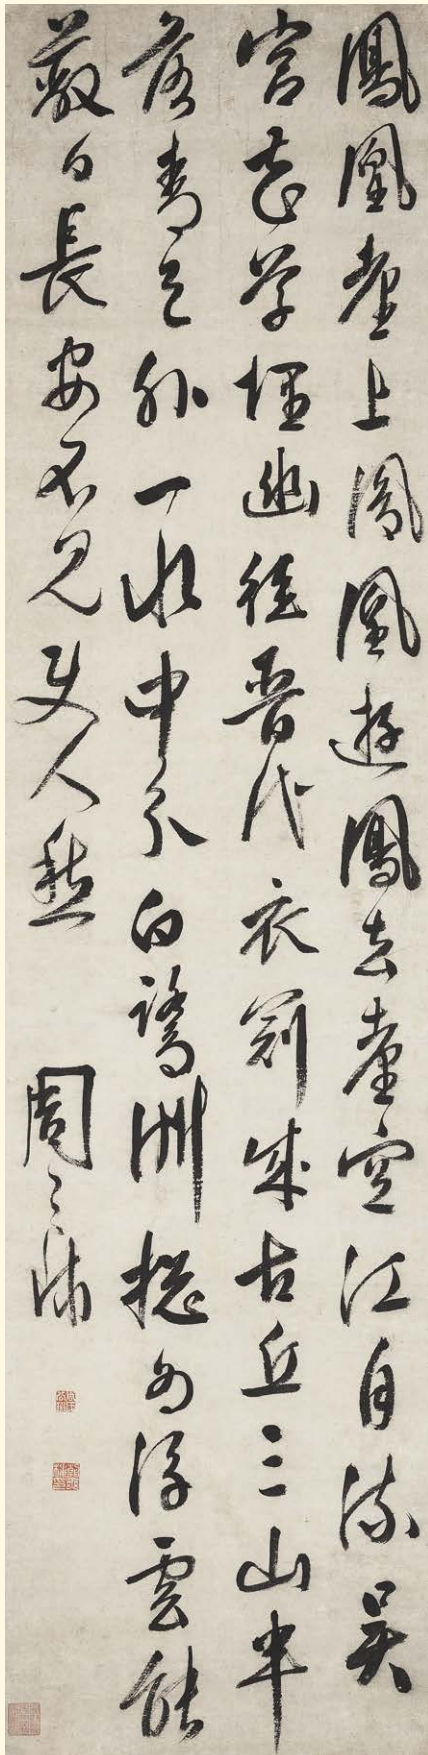 鳳凰臺上鳳凰遊鳳去臺空江自流吳
宮花草埋幽徑晉代衣冠成古丘三山半
落青天外一水中分白鷺洲總為浮雲能
蔽日長安不見使人愁
周之